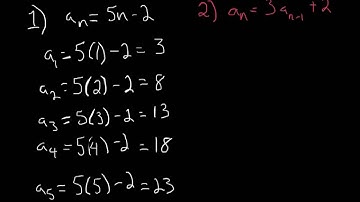 1) aₙ = 5n - 2
a₁ = 5(1) - 2 = 3
a₂ = 5(2) - 2 = 8
a₃ = 5(3) - 2 = 13
a₄ = 5(4) - 2 = 18
a₅ = 5(5) - 2 = 23
2) aₙ = 3aₙ₋₁ + 2